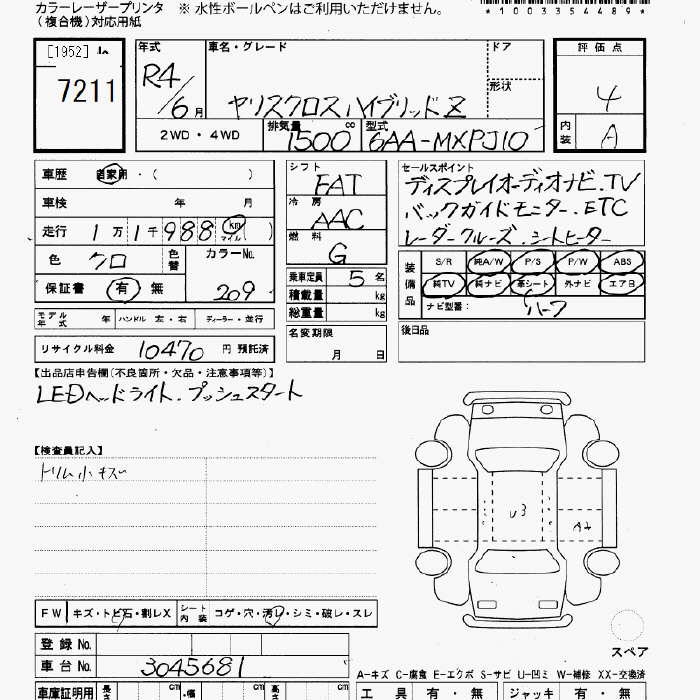 カラーレーザープリンタ ※ 水性ボールペンはご利用いただけません。
(複合機)対応用紙
*1003354489*
[1952]
7211
年式 R4/6月
車名・グレード ヤリスクロスハイブリッドZ
ドア
形状
2WD・4WD
排気量 1500 cc
型式 6AA-MXPJ10
評価点 4
内装 A
車歴 自家用・( )
車検 年 月
走行 1万1千988 km マイル ( )
色 クロ 色替 カラーNo. 209
保証書 有 無
モデル年式 年 ハンドル 左・右 ディーラー・並行
リサイクル料金 10470円 預託済
シフト FAT
冷房 AAC
燃料 G
乗車定員 5名
積載量 kg
総重量 kg
名変期限
月 日
セールスポイント
ディスプレイオーディオナビ.TV
バックガイドモニター.ETC
レーダークルーズ.シートヒーター
装備品 S/R 純A/W P/S P/W ABS
純TV 純ナビ 革シート 外ナビ エアB
ナビ型番: ハーフ
後日品
【出品店申告欄(不良箇所・欠品・注意事項等)】
LEDヘッドライト.プッシュスタート
【検査員記入】
小キズ
U3
A1
FW キズ・トビ石・割レX シート内装 コゲ・穴・汚レ・シミ・破レ・スレ
スペア
登録No.
車台No. 3045681
A-キズ C-腐食 E-エクボ S-サビ U-凹ミ W-補修 XX-交換済
車庫証明用 長さ cm ・幅 cm 高さ cm
工具 有・無 ジャッキ 有・無